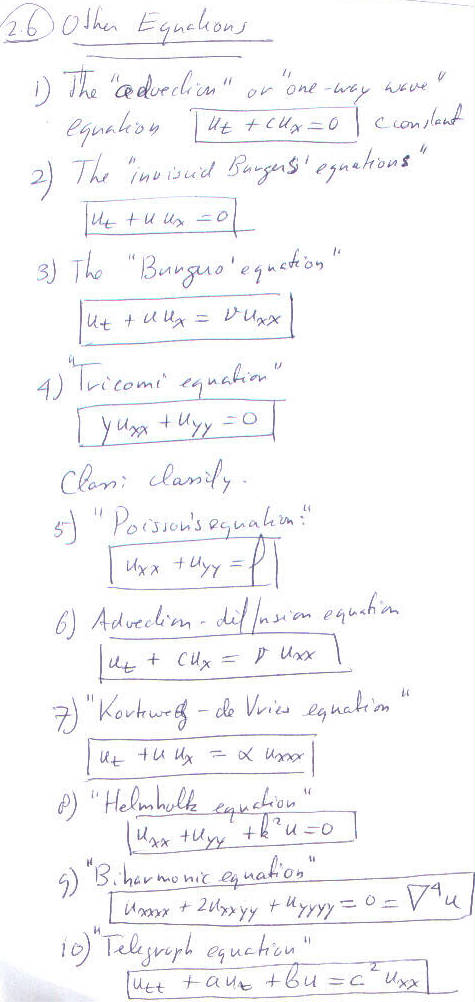 2.6 Other Equations
1) The "advection" or "one-way wave"
equation u_t + cu_x = 0 c constant
2) The "inviscid Burgers' equations"
u_t + u u_x = 0
3) The "Burgers' equation"
u_t + u u_x = ν u_xx
4) "Tricomi equation"
y u_xx + u_yy = 0
Class: classify.
5) "Poisson's equation:"
u_xx + u_yy = f
6) Advection - diffusion equation
u_t + cu_x = ν u_xx
7) "Korteweg - de Vries equation"
u_t + u u_x = α u_xxx
8) "Helmholtz equation"
u_xx + u_yy + k²u = 0
9) "Biharmonic equation"
u_xxxx + 2u_xxyy + u_yyyy = 0 = ∇⁴u
10) "Telegraph equation"
u_tt + au_t + bu = c² u_xx